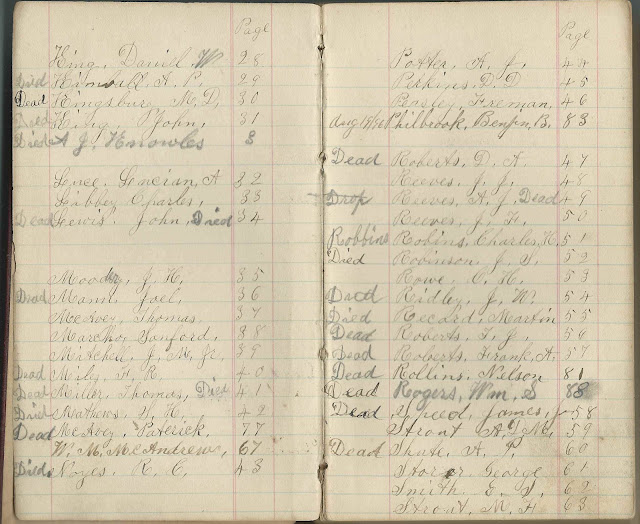 Page
King, Daniel W 28
Died Kimball A. P. 29
Dead Kingsbury, M. D. 30
Died King, John, 31
Died A J. Knowles 8
Luce, Lucian, A 32
Libbey Charles, 33
Dead Lewis, John, Died 34
Moody, J. H. 35
Dead Mann, Joel, 36
McAvey, Thomas, 37
Marcho, Sanford, 38
Mitchell, J. M. Jr. 39
Dead Miles, H. R. 40
Dead Miller, Thomas, Died 41
Died Mathews, H. 42
Dead McAvey, Paterick, 77
W. M. McAndrews, 67
Died, Noyes, R. C. 43
Page
Potter, A. J. 44
Perkins, D. D 45
Freeman, 46
Aug Philbrook, Benjn, B. 83
Dead Roberts, D. A. 47
Reeves, J. J. 48
Drop Reeves, A. J. Dead 49
Reeves, J. H. 50
Robbins Robins, Charles, H. 51
Died Robinson, J. S. 52
Rowe, O. H. 53
Dead Ridley, J. W. 54
Died Record, Martin 55
Dead Roberts, T. J. 56
Dead Roberts, Frank, A. 57
Dead Rollins, Nelson 81
Dead Rogers, Wm, S 88
Dead Speed, James, 58
Strout A. M. 59
Dead Skate, A. 60
Storer George 61
Smith, E. S. 62
Strout, M. H 63